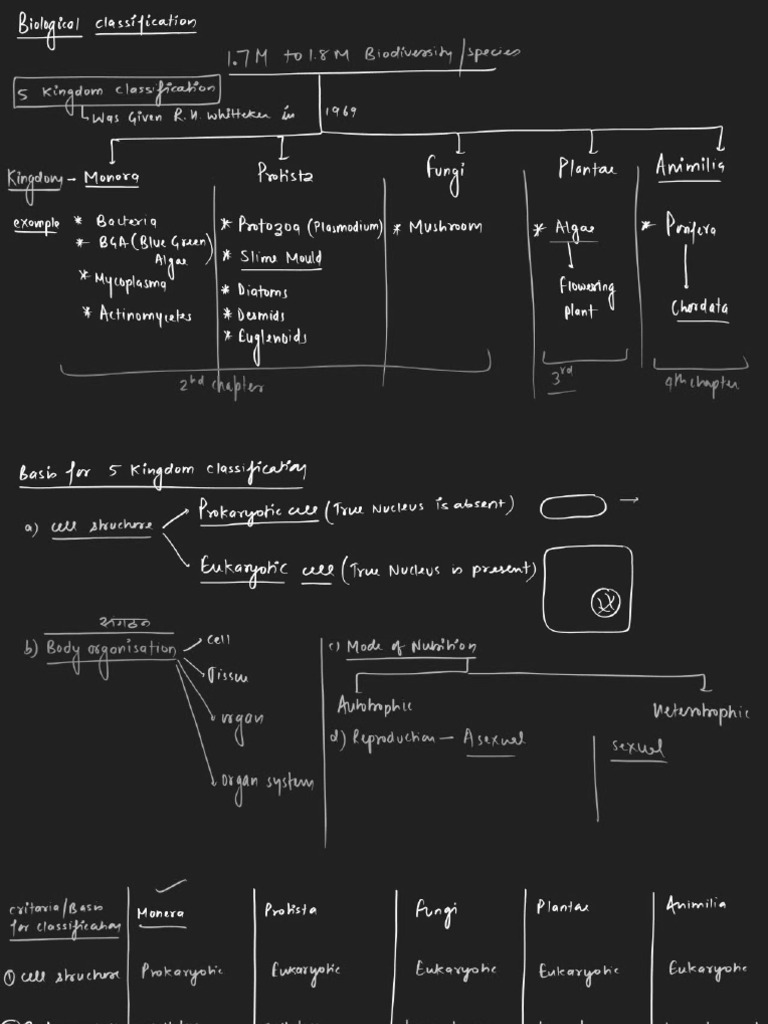 Biological classification
1.7M to 1.8M Biodiversity/species
5 Kingdom classification
Was Given R.H. Whitteker in 1969
Kingdom - Monera Protista Fungi Plantae Animilia
example * Bacteria * Protozoa (Plasmodium) * Mushroom * Algae * Porifera
* BGA (Blue Green Algae) * Slime Mould
* Mycoplasma * Diatoms Flowering plant Chordata
* Actinomycetes * Desmids
* Euglenoids
2nd chapter 3rd 4th chapter
Basis for 5 Kingdom classification
a) cell structure
Prokaryotic cell (True Nucleus is absent)
Eukaryotic cell (True Nucleus is present)
संगठन
b) Body organisation
cell
Tissue
organ
organ system
c) Mode of Nutrition
Autotrophic Heterotrophic
d) Reproduction - Asexual sexual
criteria/Basis for classification Monera Protista Fungi Plantae Animilia
① cell structure Prokaryotic Eukaryotic Eukaryotic Eukaryotic Eukaryotic